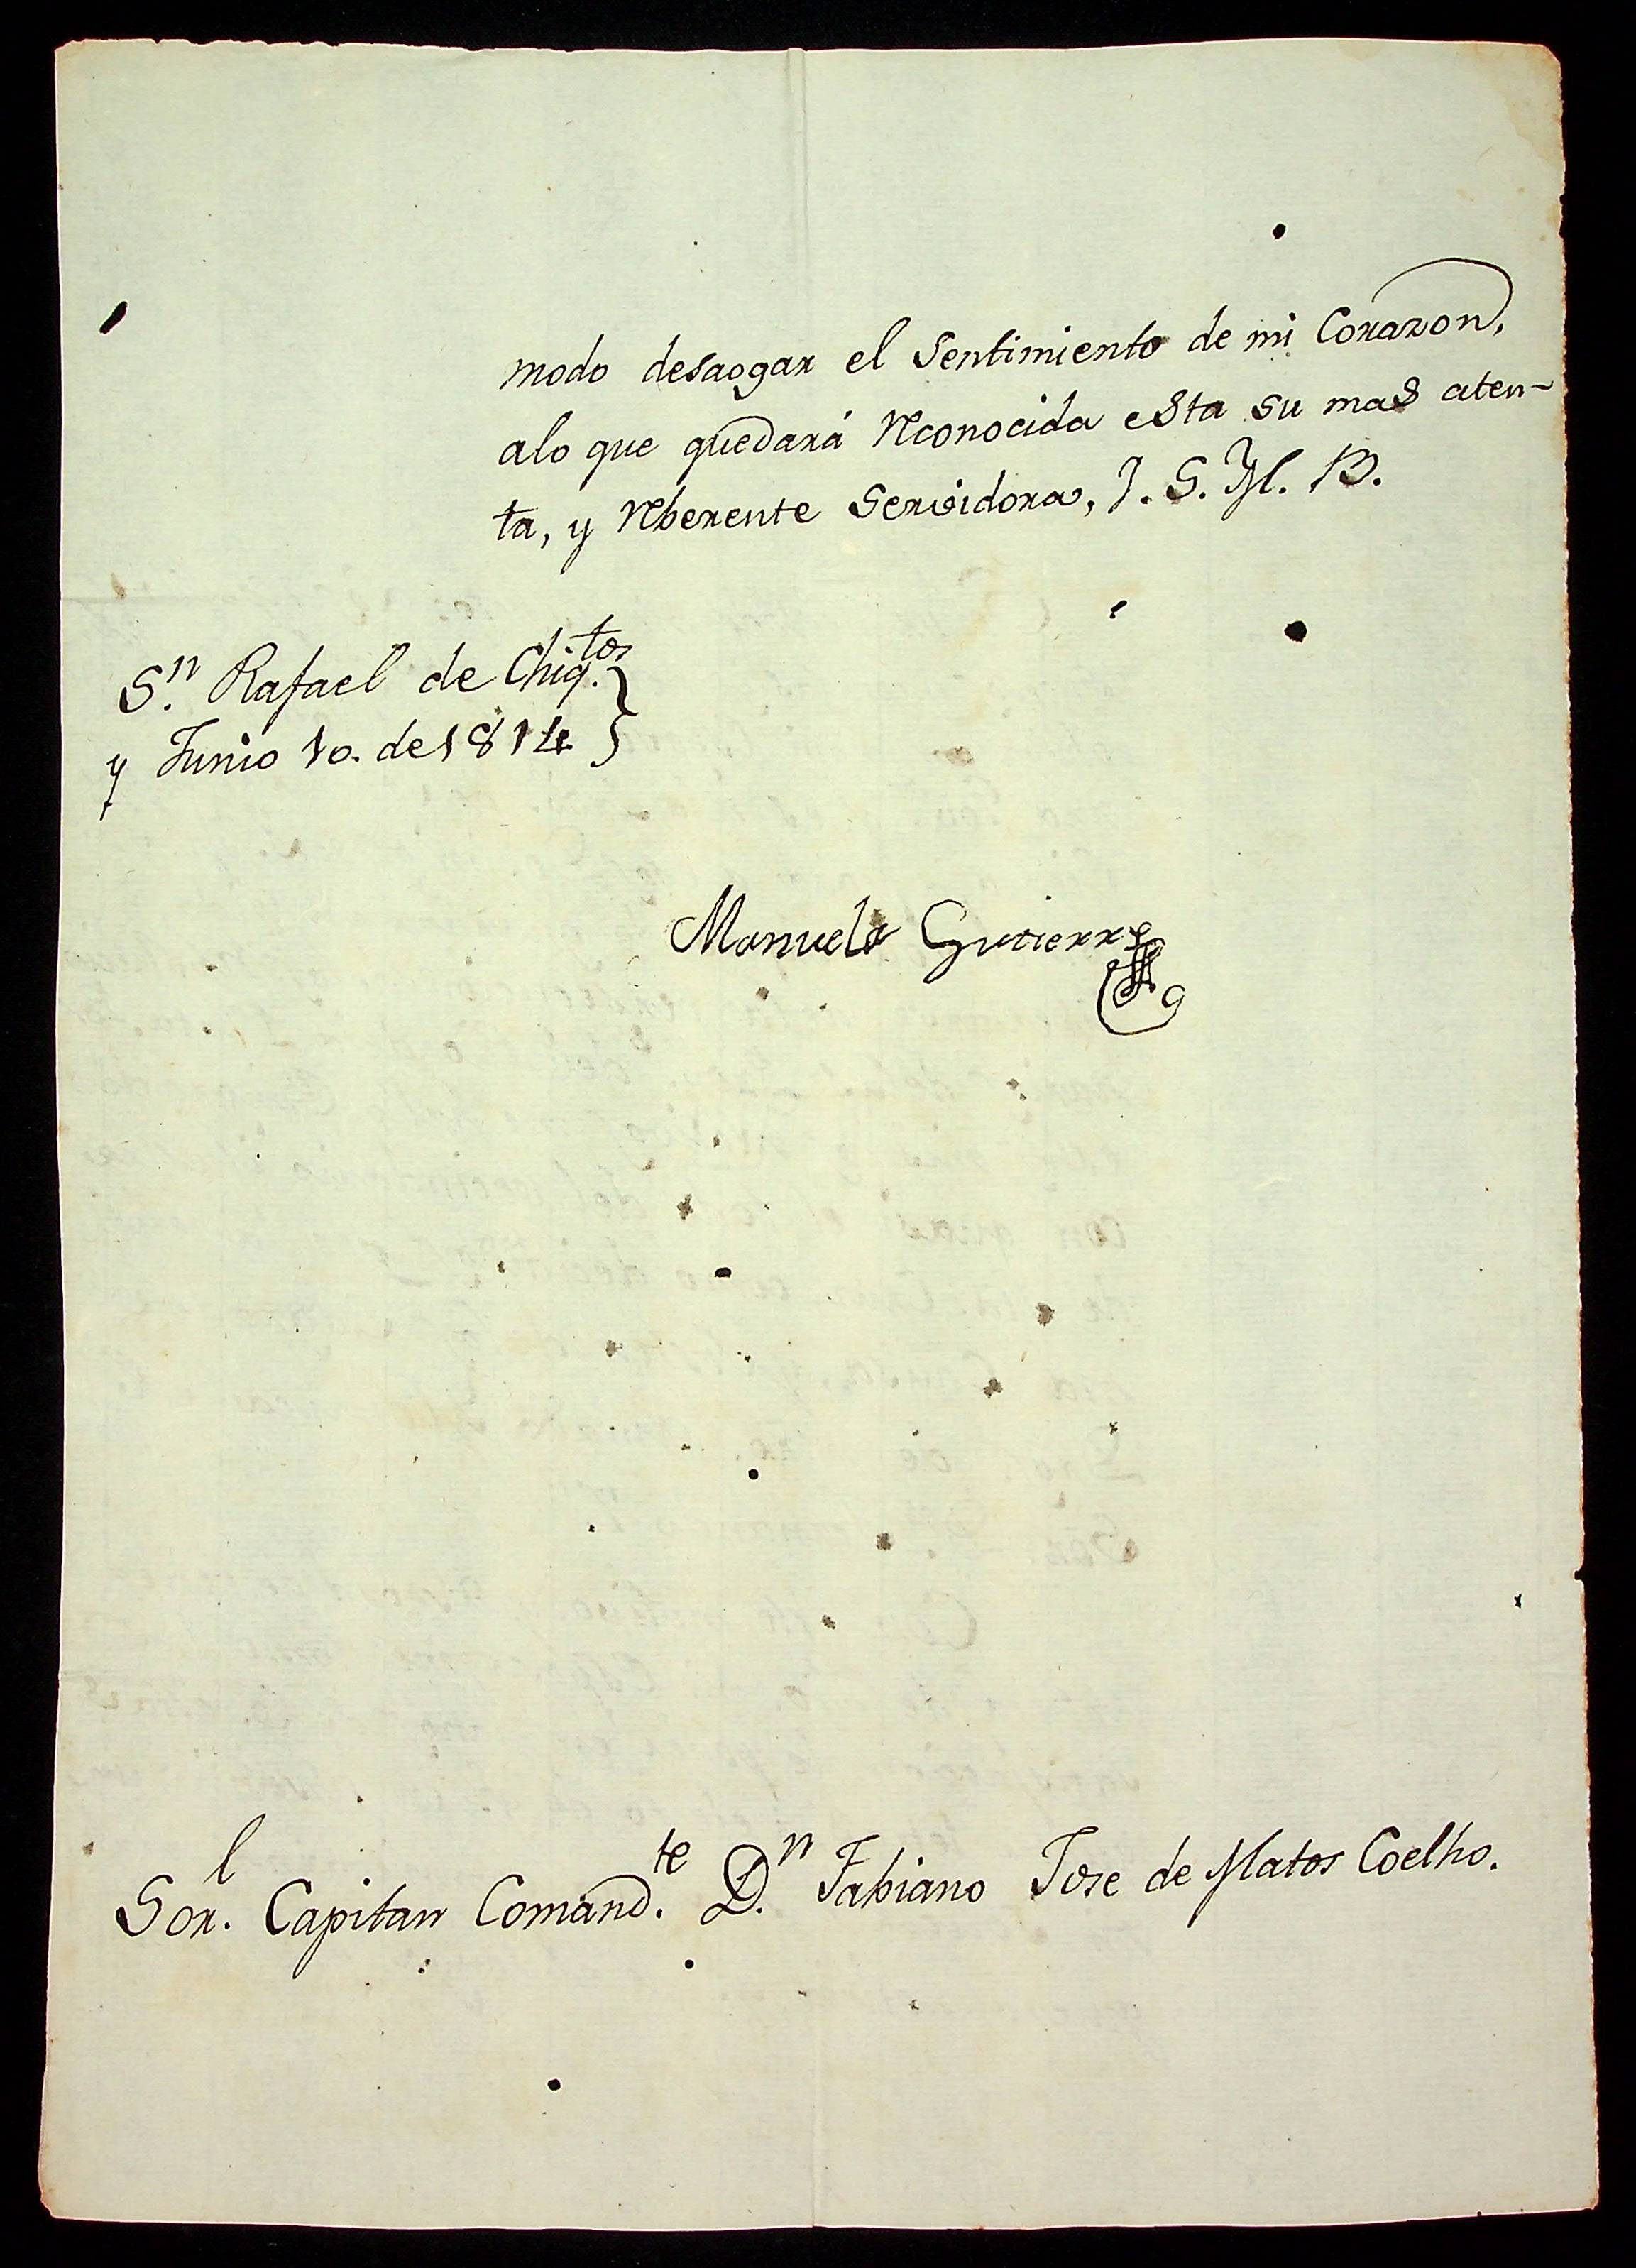 modo desaogar el Sentimiento de mi Corazon,
alo que quedará Reconocida esta su mas aten-
ta, y Reberente Servidora, J. S. M. B.
Sn. Rafael de Chiq.tos
y Junio 10. de 1814
Manuela Gutierrez
Sor.l Capitan Comand.te D.n Fabiano Jose de Matos Coelho.